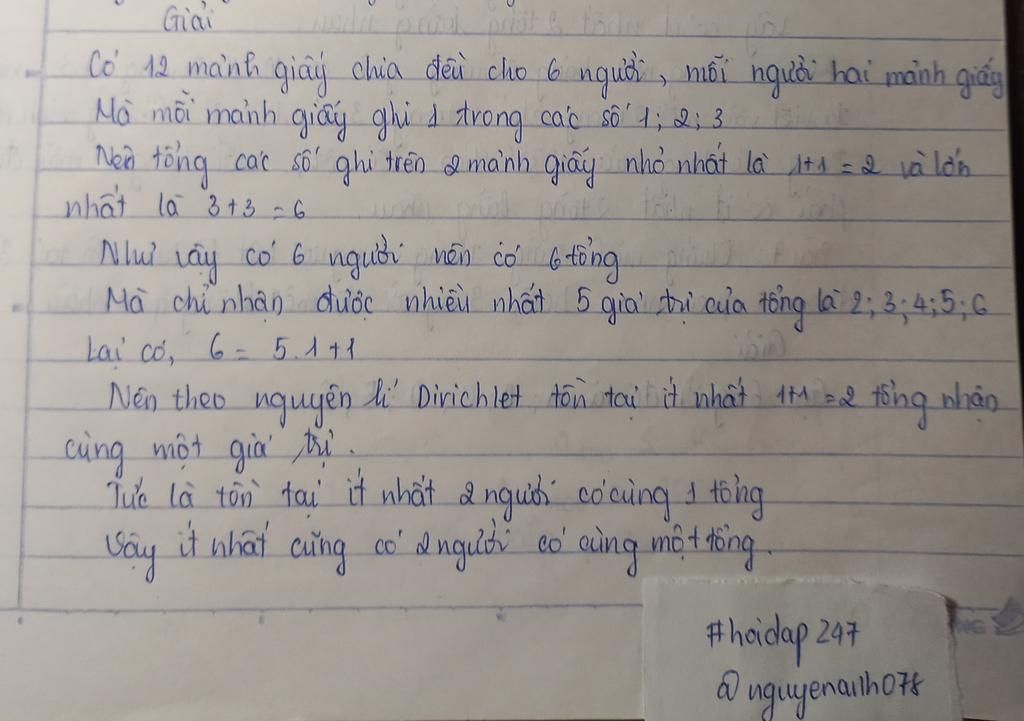 Giải
Có 12 mảnh giấy chia đều cho 6 người, mỗi người hai mảnh giấy
Mà mỗi mảnh giấy ghi 1 trong các số 1; 2; 3
Nên tổng các số ghi trên 2 mảnh giấy nhỏ nhất là 1+1 = 2 và lớn
nhất là 3+3 = 6
Như vậy có 6 người nên có 6 tổng
Mà chỉ nhận được nhiều nhất 5 giá trị của tổng là 2; 3; 4; 5; 6
Lại có, 6 = 5.1+1
Nên theo nguyên lí Dirichlet tồn tại ít nhất 1+1 = 2 tổng nhận
cùng một giá trị.
Tức là tồn tại ít nhất 2 người có cùng 1 tổng
Vậy ít nhất cũng có 2 người có cùng một tổng.
#hoidap247
@nguyenanh078